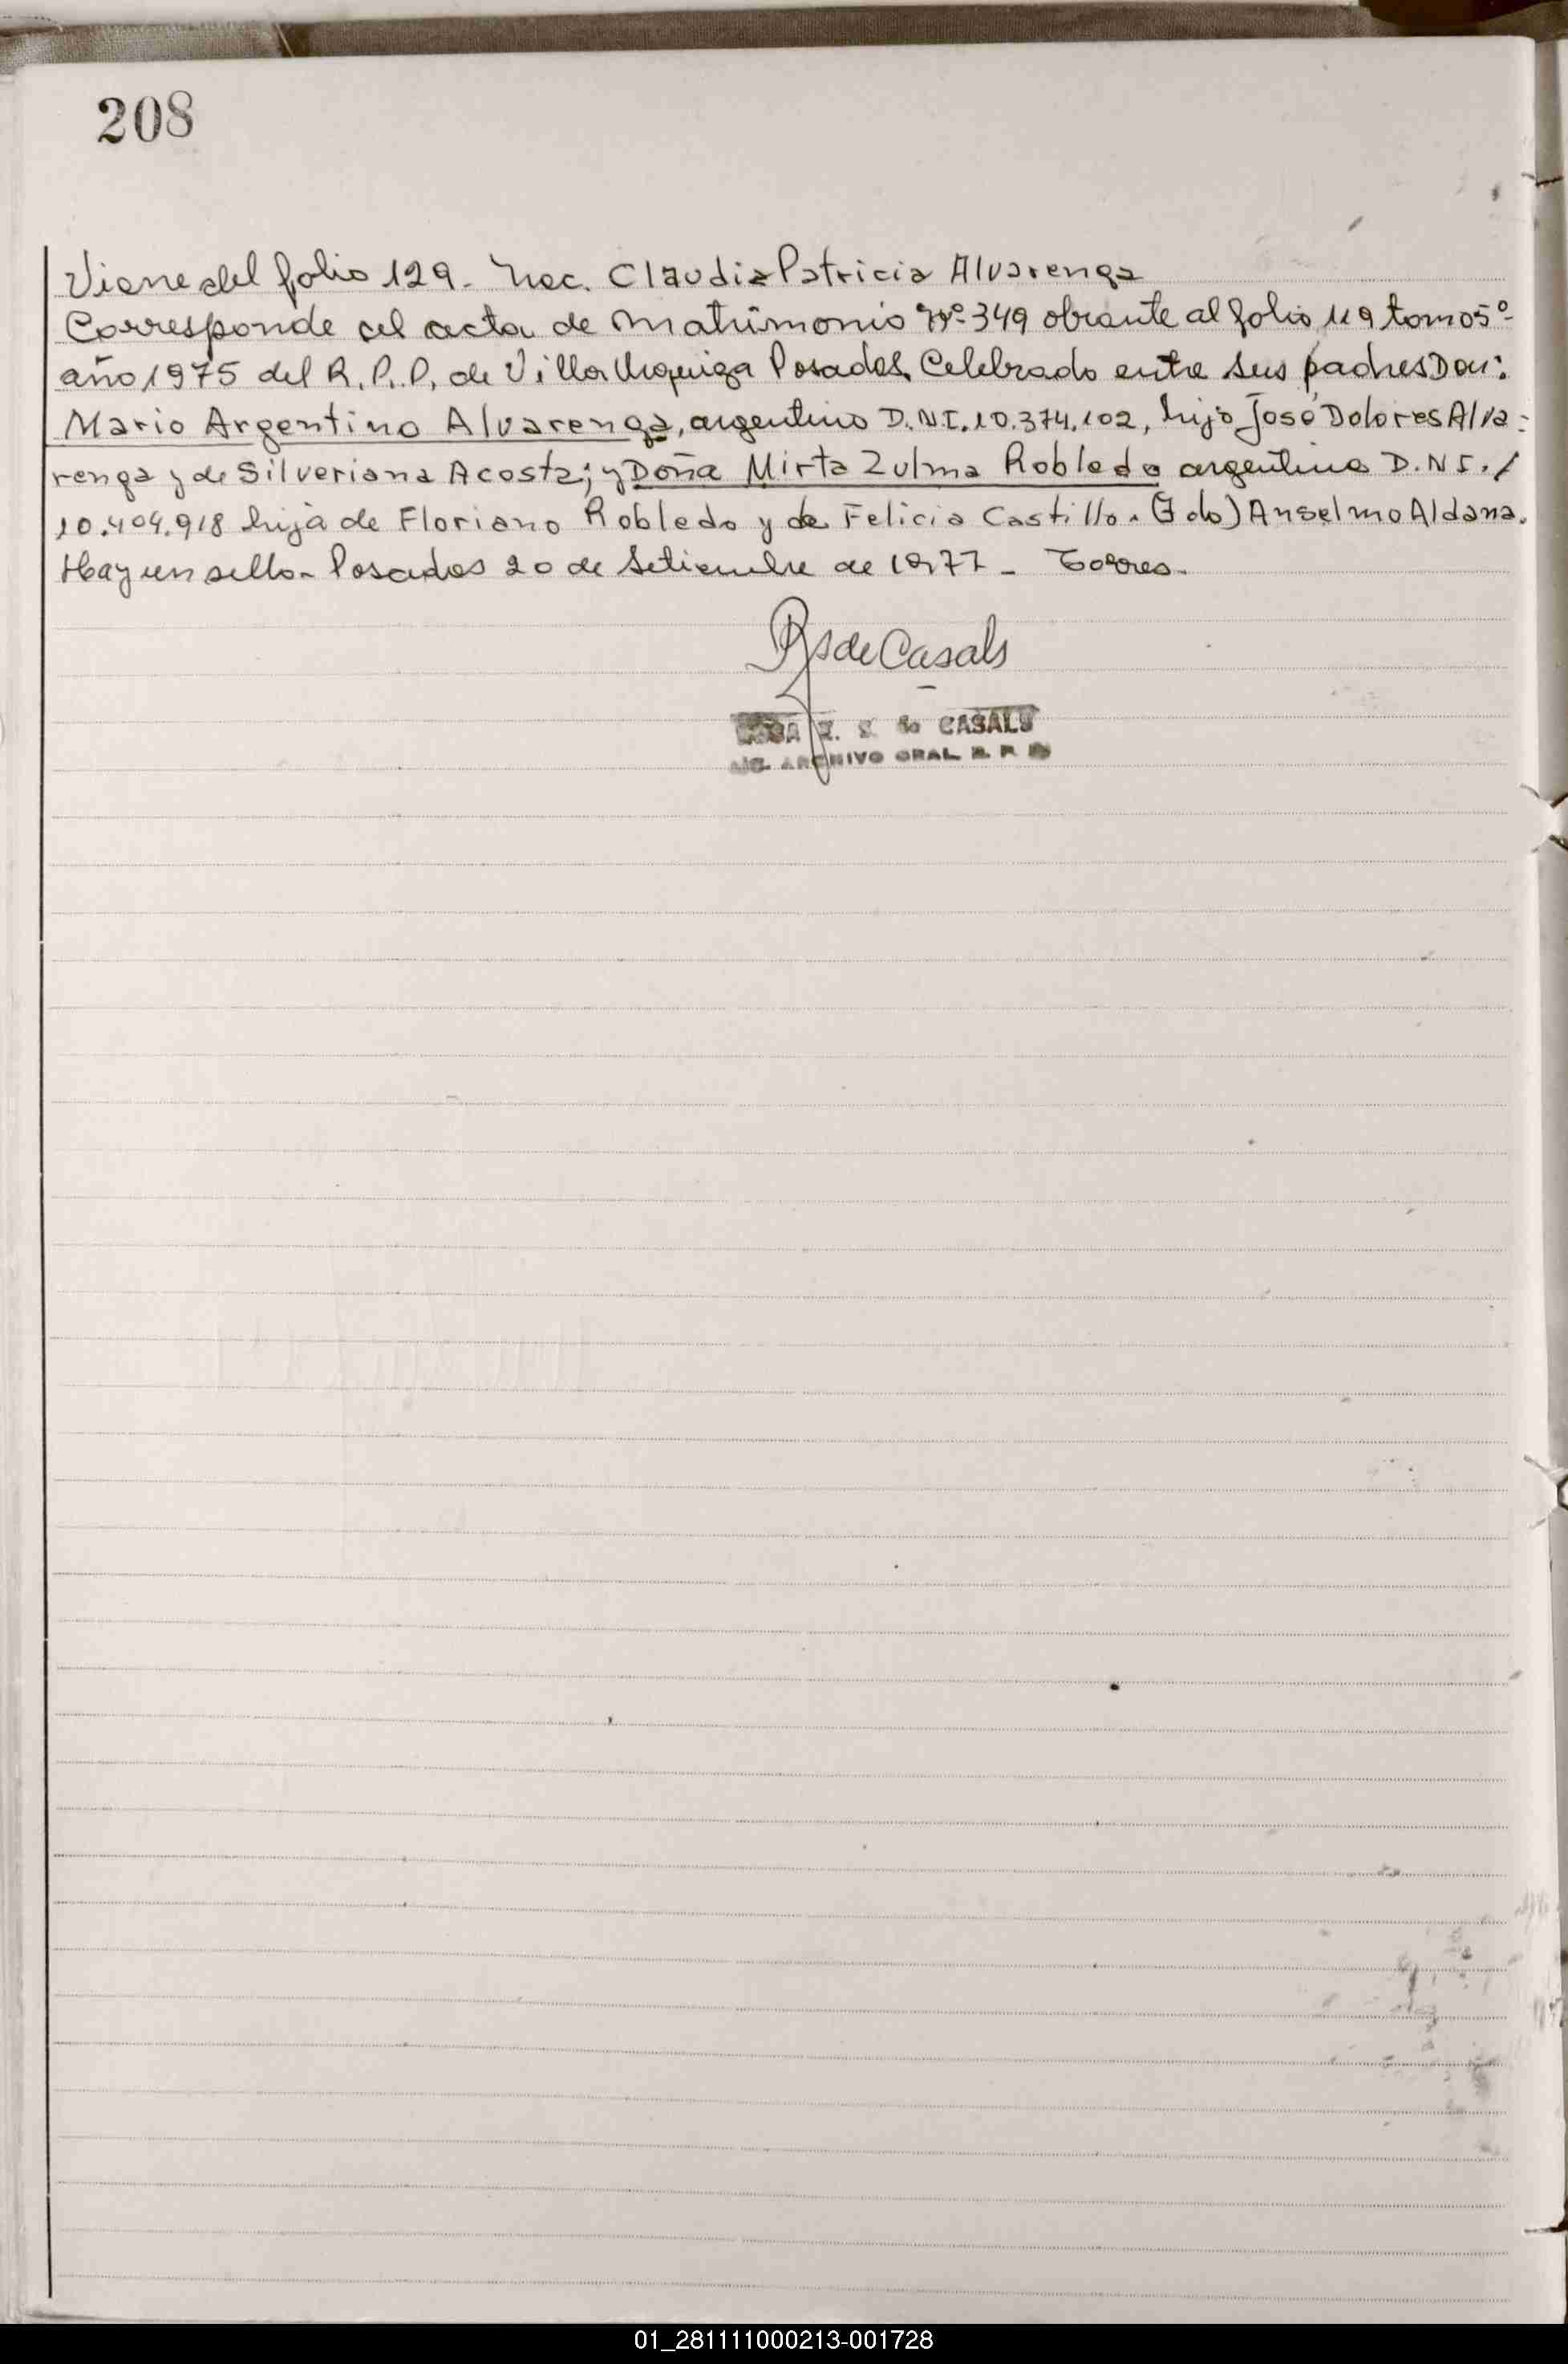 208
Viene del folio 129. Nac. Claudia Patricia Alvarenga
Corresponde al acta de Matrimonio Nº 349 obrante al folio 119 tomo 5º
año 1975 del R.P.P. de Villa Urquiza Posadas, Celebrado entre sus padres Don:
Mario Argentino Alvarenga, argentino D.N.I. 10.374.102, hijo José Dolores Alva-
renga y de Silveriana Acosta; y Doña Mirta Zulma Robledo argentina D.N.I./
10.404.918 hija de Floriano Robledo y de Felicia Castillo. (Fdo) Anselmo Aldana.
Hay un sello. Posadas 20 de Setiembre de 1977 - Torres.
de Casals
R. S. de CASALS
ARCHIVO GRAL. R. P.
01_281111000213-001728